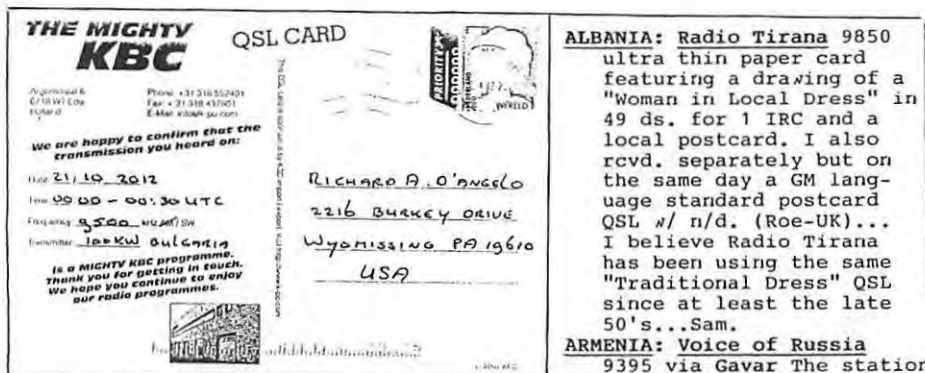 THE MIGHTY
KBC
QSL CARD
PRIORITY
WERELD
Phone: +31 318 552401
We are happy to confirm that the
transmission you heard on:
Date 21, 10, 2012
Time 00 00 - 00:30 UTC
Frequency 9500
100KW BULGARIA
Is a MIGHTY KBC programme.
Thank you for getting in touch.
We hope you continue to enjoy
our radio programmes.
RICHARD A. D'ANGELO
2216 BURKEY DRIVE
WYOMISSING PA 19610
USA
ALBANIA: Radio Tirana 9850
ultra thin paper card
featuring a drawing of a
"Woman in Local Dress" in
49 ds. for 1 IRC and a
local postcard. I also
rcvd. separately but on
the same day a GM lang-
uage standard postcard
QSL w/ n/d. (Roe-UK)...
I believe Radio Tirana
has been using the same
"Traditional Dress" QSL
since at least the late
50's...Sam.
ARMENIA: Voice of Russia
9395 via Gavar The station